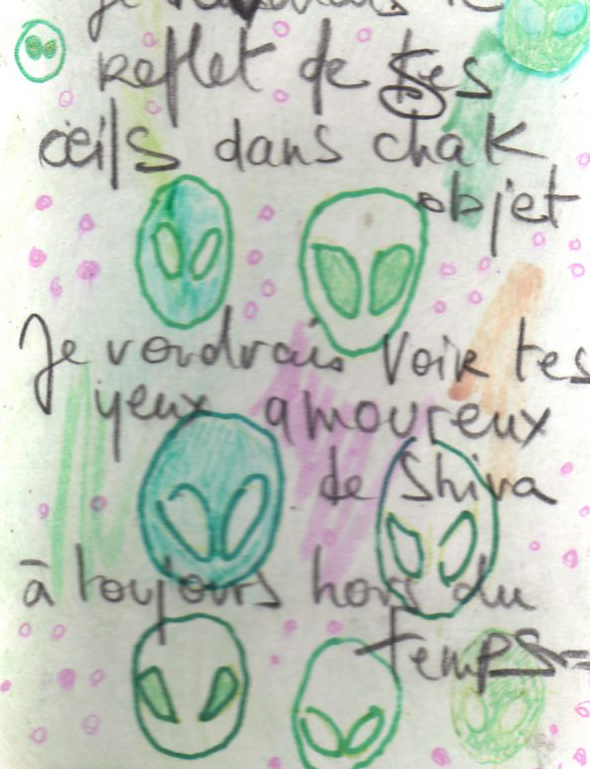 je voudrais le
reflet de tes
œils dans chak
objet
Je voudrais voir tes
yeux amoureux
de Shiva
à toujours hors du
temps